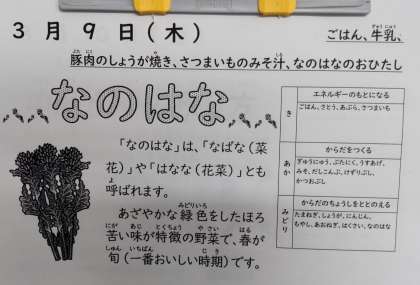 3月9日(木)
ごはん、牛乳、
豚肉のしょうが焼き、さつまいものみそ汁、なのはなのおひたし
なのはな
「なのはな」は、「なばな(菜
花)」や「はなな(花菜)」とも
呼ばれます。
あざやかな緑色をしたほろ
苦い味が特徴の野菜で、春が
旬(一番おいしい時期)です。
エネルギーのもとになる
き
ごはん、さとう、あぶら、さつまいも
からだをつくる
あか
ぎゅうにゅう、ぶたにく、うすあげ、
みそ、だしこんぶ、けずりぶし、
かつおぶし
からだのちょうしをととのえる
みどり
たまねぎ、しょうが、にんじん、
もやし、あおねぎ、はくさい、なのはな